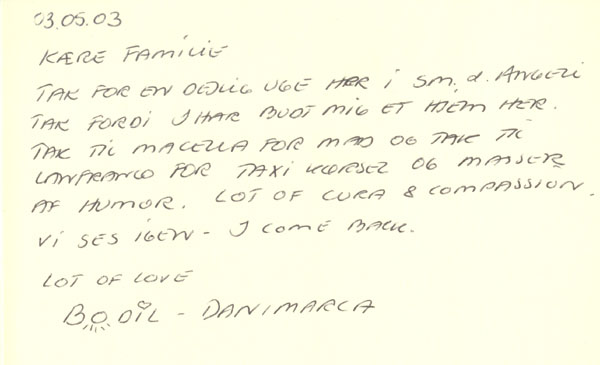 03.05.03
KÆRE FAMILIE
TAK FOR EN DEJLIG UGE HER I SM. d. ANGELI
TAK FORDI I HAR BUDT MIG ET HJEM HER.
TAK TIL MACELLA FOR MAD OG TAK TIL
LANFRANCO FOR TAXI KØRSEL OG MASSER
AF HUMOR. LOT OF CURA & COMPASSION.
VI SES IGEN - I COME BACK.
LOT OF LOVE
BODIL - DANIMARCA